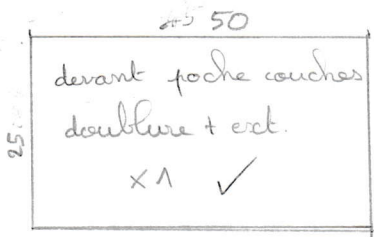 50
devant poche couches
doublure + ext.
x1 ✓
25